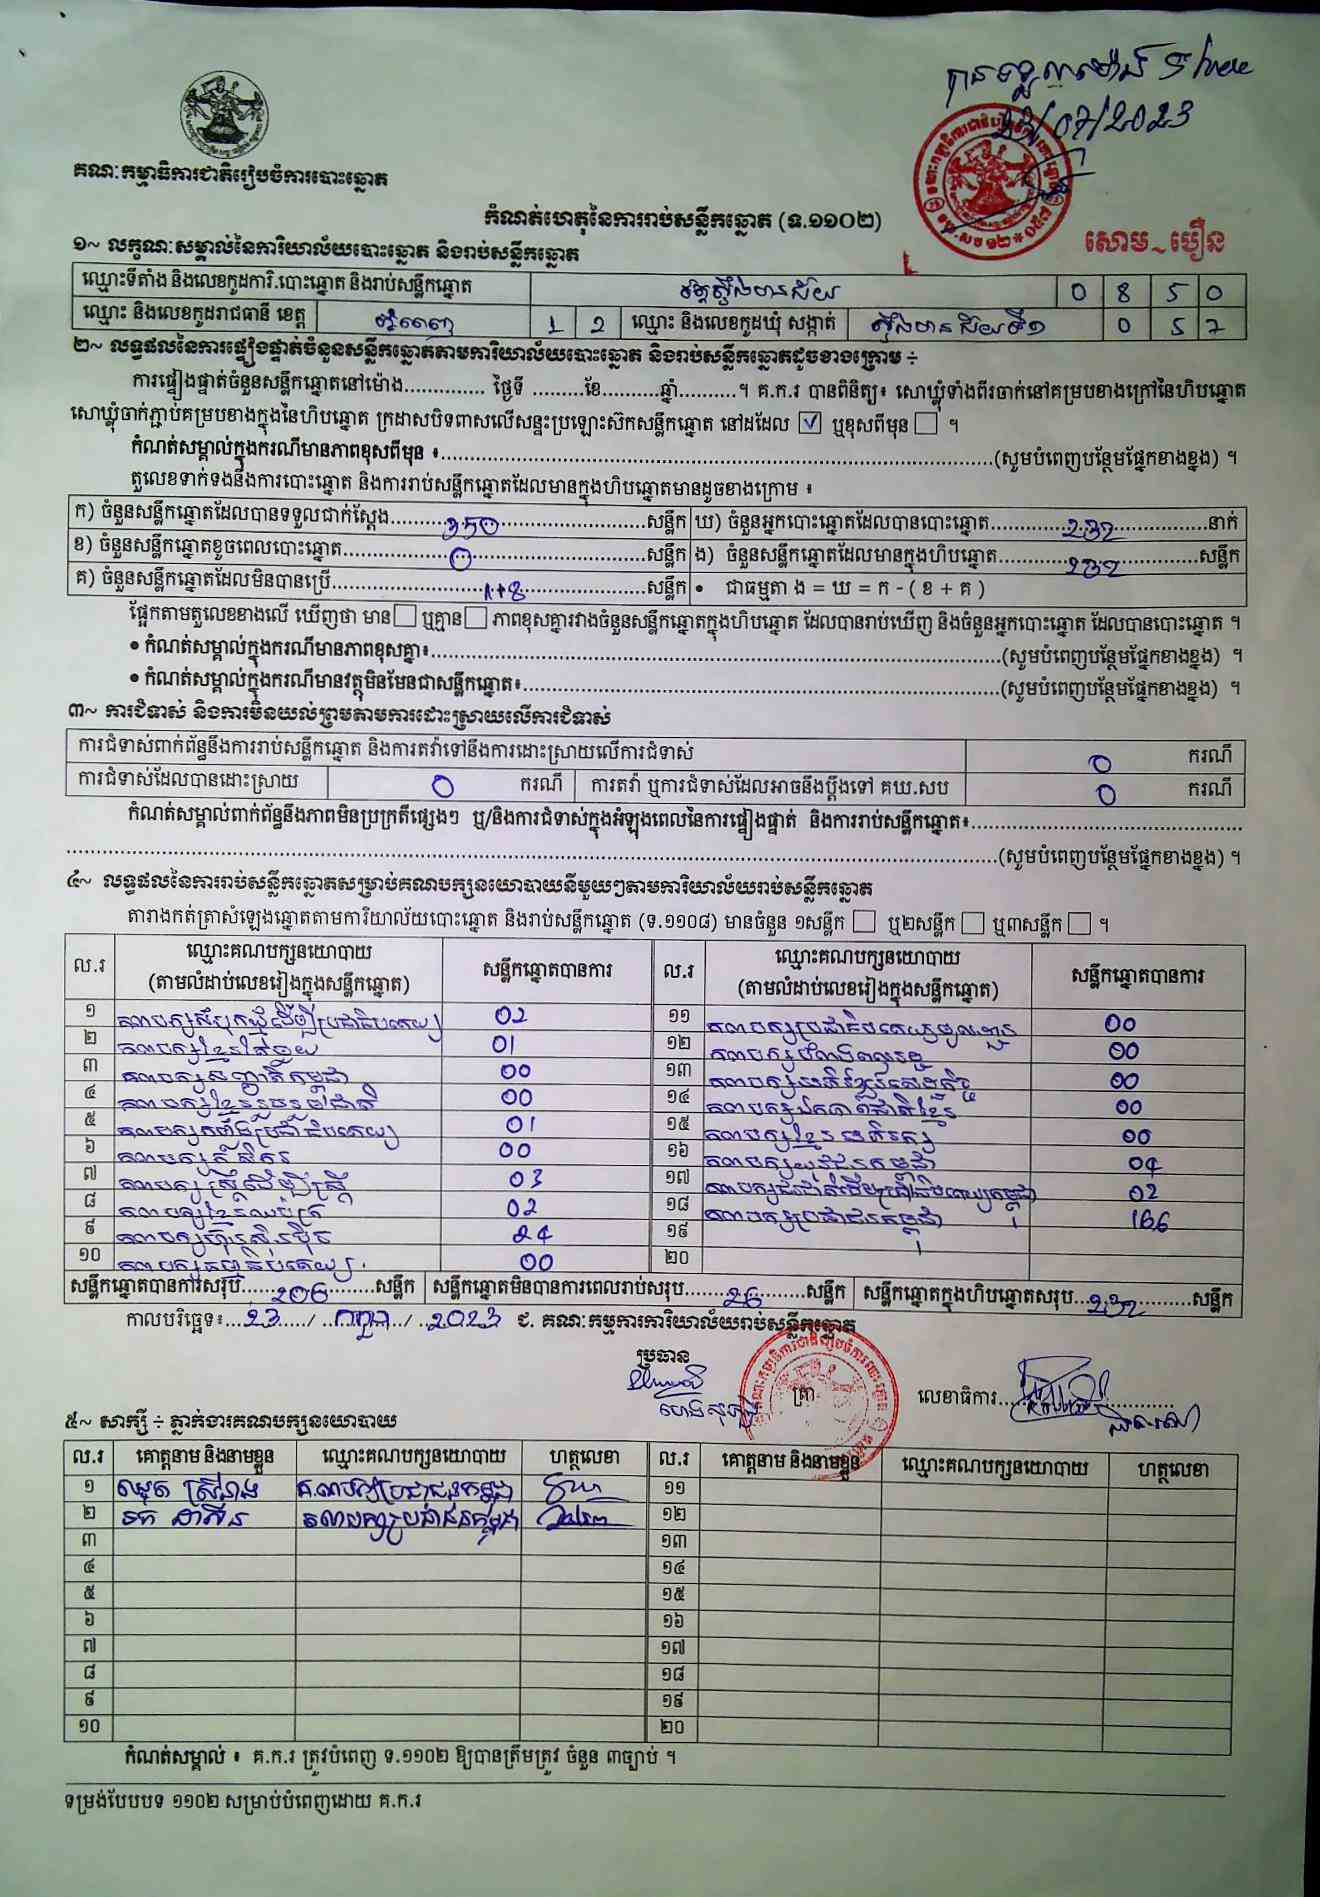 គណៈកម្មាធិការជាតិរៀបចំការបោះឆ្នោត
23/07/2023
កំណត់ហេតុនៃការរាប់សន្លឹកឆ្នោត (ទ.១១០២)
សោម~បឿន
១~ លក្ខណៈសម្គាល់នៃការិយាល័យបោះឆ្នោត និងរាប់សន្លឹកឆ្នោត
ឈ្មោះទីតាំង និងលេខកូដការិ.បោះឆ្នោត និងរាប់សន្លឹកឆ្នោត វត្តស្ទឹងមានជ័យ 0 8 5 0
ឈ្មោះ និងលេខកូដរាជធានី ខេត្ត ភ្នំពេញ 1 2 ឈ្មោះ និងលេខកូដឃុំ សង្កាត់ ស្ទឹងមានជ័យទី១ 0 5 7
២~ លទ្ធផលនៃការផ្ទៀងផ្ទាត់ចំនួនសន្លឹកឆ្នោតតាមការិយាល័យបោះឆ្នោត និងរាប់សន្លឹកឆ្នោតដូចខាងក្រោម ÷
ការផ្ទៀងផ្ទាត់ចំនួនសន្លឹកឆ្នោតនៅម៉ោង.............. ថ្ងៃទី .........ខែ..........ឆ្នាំ..........។ គ.ក.រ បានពិនិត្យ៖ សោឃ្លុំទាំងពីរចាក់នៅគម្របខាងក្រៅនៃហិបឆ្នោត
សោឃ្លុំចាក់ភ្ជាប់គម្របខាងក្នុងនៃហិបឆ្នោត ក្រដាសបិទពាសលើសន្ទះប្រឡោះស៊កសន្លឹកឆ្នោត នៅដដែល ☑ ឬខុសពីមុន ☐ ។
កំណត់សម្គាល់ក្នុងករណីមានភាពខុសពីមុន ៖..........(សូមបំពេញបន្ថែមផ្នែកខាងខ្នង) ។
តួលេខទាក់ទងនឹងការបោះឆ្នោត និងការរាប់សន្លឹកឆ្នោតដែលមានក្នុងហិបឆ្នោតមានដូចខាងក្រោម ៖
ក) ចំនួនសន្លឹកឆ្នោតដែលបានទទួលជាក់ស្តែង.....350.....សន្លឹក ឃ) ចំនួនអ្នកបោះឆ្នោតដែលបានបោះឆ្នោត.....232.....នាក់
ខ) ចំនួនសន្លឹកឆ្នោតខូចពេលបោះឆ្នោត.....0.....សន្លឹក ង) ចំនួនសន្លឹកឆ្នោតដែលមានក្នុងហិបឆ្នោត.....232.....សន្លឹក
គ) ចំនួនសន្លឹកឆ្នោតដែលមិនបានប្រើ.....118.....សន្លឹក • ជាធម្មតា ង = ឃ = ក - ( ខ + គ )
ផ្អែកតាមតួលេខខាងលើ ឃើញថា មាន ☐ ឬគ្មាន ☐ ភាពខុសគ្នារវាងចំនួនសន្លឹកឆ្នោតក្នុងហិបឆ្នោត ដែលបានរាប់ឃើញ និងចំនួនអ្នកបោះឆ្នោត ដែលបានបោះឆ្នោត ។
• កំណត់សម្គាល់ក្នុងករណីមានភាពខុសគ្នា៖..........(សូមបំពេញបន្ថែមផ្នែកខាងខ្នង) ។
• កំណត់សម្គាល់ក្នុងករណីមានវត្ថុមិនមែនជាសន្លឹកឆ្នោត៖..........(សូមបំពេញបន្ថែមផ្នែកខាងខ្នង) ។
៣~ ការជំទាស់ និងការមិនយល់ព្រមតាមការដោះស្រាយលើការជំទាស់
ការជំទាស់ពាក់ព័ន្ធនឹងការរាប់សន្លឹកឆ្នោត និងការតវ៉ាទៅនឹងការដោះស្រាយលើការជំទាស់ 0 ករណី
ការជំទាស់ដែលបានដោះស្រាយ 0 ករណី ការតវ៉ា ឬការជំទាស់ដែលអាចនឹងប្តឹងទៅ គឃ.សប 0 ករណី
កំណត់សម្គាល់ពាក់ព័ន្ធនឹងភាពមិនប្រក្រតីផ្សេងៗ ឬ/និងការជំទាស់ក្នុងអំឡុងពេលនៃការផ្ទៀងផ្ទាត់ និងការរាប់សន្លឹកឆ្នោត៖..........
..........(សូមបំពេញបន្ថែមផ្នែកខាងខ្នង) ។
៤~ លទ្ធផលនៃការរាប់សន្លឹកឆ្នោតសម្រាប់គណបក្សនយោបាយនីមួយៗតាមការិយាល័យរាប់សន្លឹកឆ្នោត
តារាងកត់ត្រាសំឡេងឆ្នោតតាមការិយាល័យបោះឆ្នោត និងរាប់សន្លឹកឆ្នោត (ទ.១១០៨) មានចំនួន ១សន្លឹក ☐ ឬ២សន្លឹក ☐ ឬ៣សន្លឹក ☐ ។
ល.រ ឈ្មោះគណបក្សនយោបាយ (តាមលំដាប់លេខរៀងក្នុងសន្លឹកឆ្នោត) សន្លឹកឆ្នោតបានការ ល.រ ឈ្មោះគណបក្សនយោបាយ (តាមលំដាប់លេខរៀងក្នុងសន្លឹកឆ្នោត) សន្លឹកឆ្នោតបានការ
១ គណបក្សសំបុកឃ្មុំដើម្បីប្រជាធិបតេយ្យ 02 ១១ គណបក្សប្រជាធិបតេយ្យមូលដ្ឋាន 00
២ គណបក្សខ្មែរតែមួយ 01 ១២ គណបក្សបំពាក់ពលរដ្ឋ 00
៣ គណបក្សសញ្ជាតិកម្ពុជា 00 ១៣ 00
៤ គណបក្សខ្មែររួបរួមជាតិ 00 ១៤ គណបក្សឯកភាពជាតិខ្មែរ 00
៥ គណបក្សកម្លាំងប្រជាធិបតេយ្យ 01 ១៥ គណបក្សខ្មែរអភិរក្ស 00
៦ គណបក្សកសិករ 00 ១៦ គណបក្សយុវជនកម្ពុជា 04
៧ គណបក្សស្ត្រីដើម្បីស្ត្រី 03 ១៧ គណបក្សជនជាតិដើមប្រជាធិបតេយ្យកម្ពុជា 02
៨ គណបក្សខ្មែរឈប់ក្រ 02 ១៨ គណបក្សប្រជាជនកម្ពុជា 166
៩ គណបក្សហ៊្វុនស៊ិនប៉ិច 24 ១៩
១០ គណបក្សធម្មាធិបតេយ្យ 00 ២០
សន្លឹកឆ្នោតបានការសរុប.....206.....សន្លឹក សន្លឹកឆ្នោតមិនបានការពេលរាប់សរុប.....26.....សន្លឹក សន្លឹកឆ្នោតក្នុងហិបឆ្នោតសរុប.....232.....សន្លឹក
កាលបរិច្ឆេទ៖...23..../..កក្កដា../..2023 ជ. គណៈកម្មការការិយាល័យរាប់សន្លឹកឆ្នោត
ប្រធាន ត្រា លេខាធិការ..........
៥~ សាក្សី ÷ ភ្នាក់ងារគណបក្សនយោបាយ
ល.រ គោត្តនាម និងនាមខ្លួន ឈ្មោះគណបក្សនយោបាយ ហត្ថលេខា ល.រ គោត្តនាម និងនាមខ្លួន ឈ្មោះគណបក្សនយោបាយ ហត្ថលេខា
១ គណបក្សប្រជាជនកម្ពុជា ១១
២ គណបក្សប្រជាជនកម្ពុជា ១២
៣ ១៣
៤ ១៤
៥ ១៥
៦ ១៦
៧ ១៧
៨ ១៨
៩ ១៩
១០ ២០
កំណត់សម្គាល់ ៖ គ.ក.រ ត្រូវបំពេញ ទ.១១០២ ឱ្យបានត្រឹមត្រូវ ចំនួន ៣ច្បាប់ ។
ទម្រង់បែបបទ ១១០២ សម្រាប់បំពេញដោយ គ.ក.រ